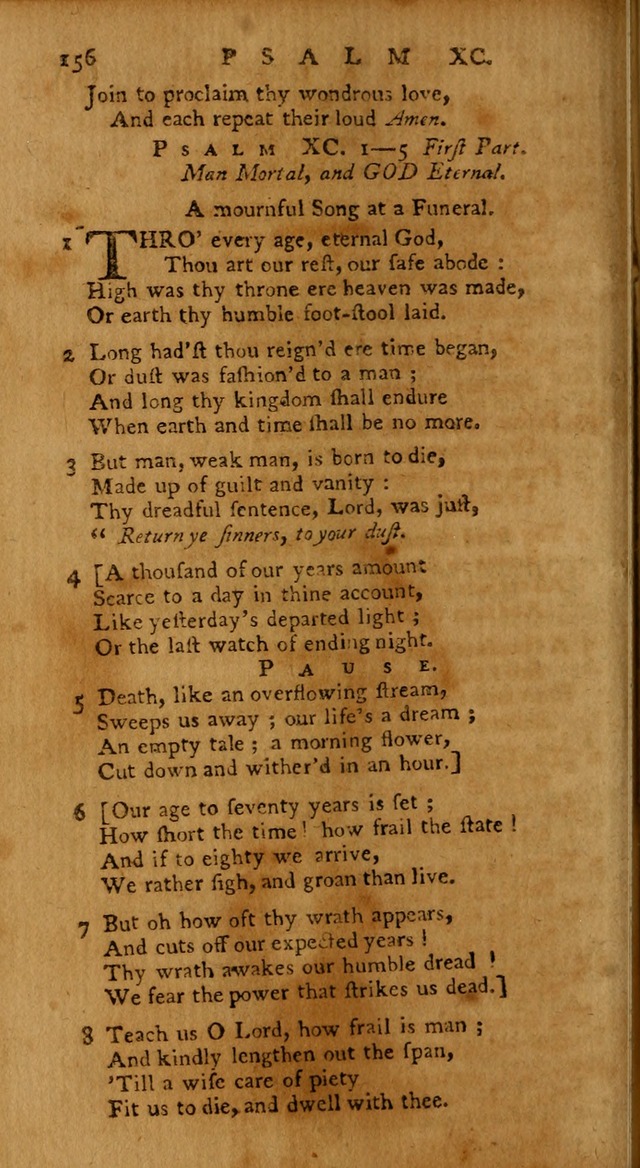 156 PSALM XC.
Join to proclaim thy wondrous love,
And each repeat their loud Amen.
PSALM XC. 1—5 Firſt Part.
Man Mortal, and GOD Eternal.
A mournful Song at a Funeral.
1 THRO' every age, eternal God,
Thou art our reſt, our ſafe abode :
High was thy throne ere heaven was made,
Or earth thy humble foot-ſtool laid.
2 Long had'ſt thou reign'd ere time began,
Or duſt was faſhion'd to a man ;
And long thy kingdom ſhall endure
When earth and time ſhall be no more.
3 But man, weak man, is born to die,
Made up of guilt and vanity :
Thy dreadful ſentence, Lord, was juſt,
“ Return ye ſinners, to your duſt.
4 [A thouſand of our years amount
Scarce to a day in thine account,
Like yeſterday's departed light ;
Or the laſt watch of ending night.
PAUSE.
5 Death, like an overflowing ſtream,
Sweeps us away ; our life's a dream ;
An empty tale ; a morning flower,
Cut down and wither'd in an hour.]
6 [Our age to ſeventy years is ſet ;
How ſhort the time ! how frail the ſtate !
And if to eighty we arrive,
We rather ſigh, and groan than live.
7 But oh how oft thy wrath appears,
And cuts off our expected years !
Thy wrath awakes our humble dread !
We fear the power that ſtrikes us dead.]
8 Teach us O Lord, how frail is man ;
And kindly lengthen out the ſpan,
'Till a wiſe care of piety
Fit us to die, and dwell with thee.